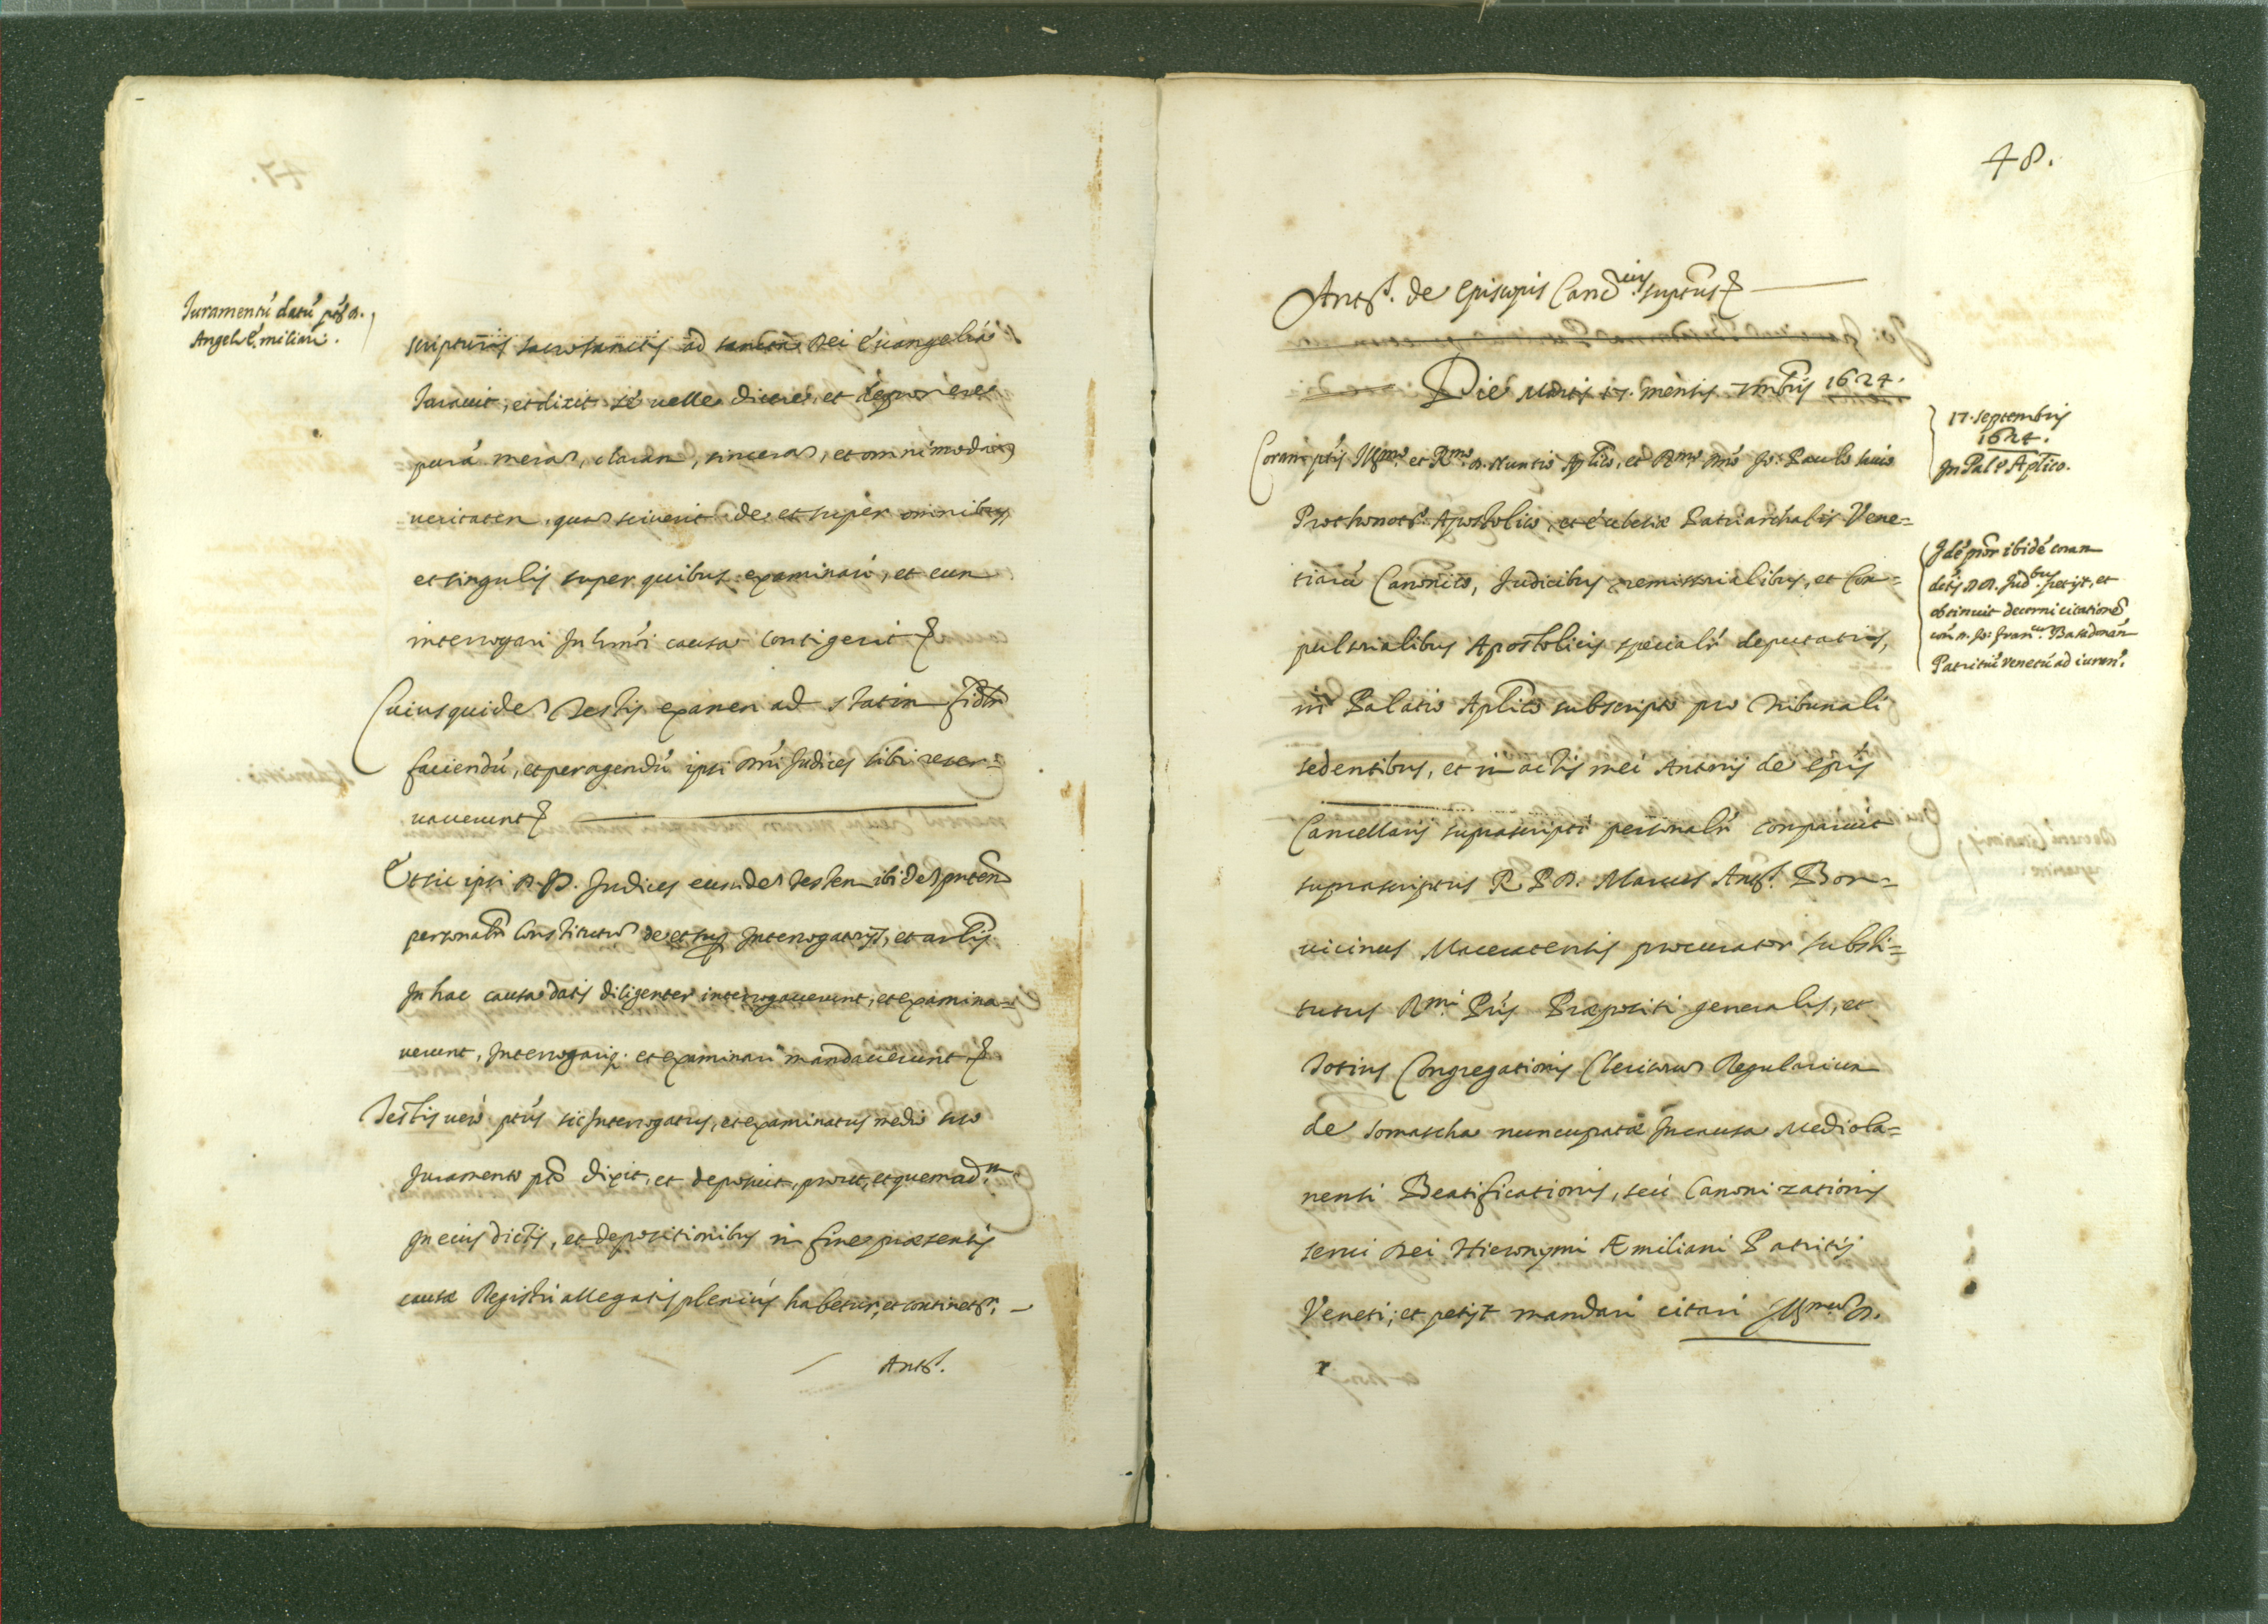 Iuramentũ datũ ptõ D.
Angelo Emiliani.
scripturis sacrosanctis ad sancta Dei Euangelia
Iurauit, et dixit sè uelle dicere, et deponere
purã meram, claram, sinceram, et omnimodam
ueritatem, quam sciuerit de et super omnibus
et singulis super quibus examinari, et eum
interrogari In hmõi causa contigerit
Cuiusquidem Testis examen ad statim
faciendũ, et peragendũ ipsi Dñi Iudices sibi reser=
uauerunt
Et sic ipsi D.D. Iudices eundem testem ibidem pñtem
personalr̃ Constitutum de et suꝑ Interrogatorijs, et artlis
In hac causa datis diligenter interrogauerunt, et examina=
uerunt, Interrogariq. et examinari mandauerunt
Testis uero ptũs sic Interrogatus, et examinatus medio suo
Iuramento ptõ dixit, et deposuit, prout, et quemad.m
In eius dictis, et depositionibus in fine praesentis
causæ Registri allegatis plenius habetur, et continetr. —
Ant.s
48.
Ant.s de Episcopis Canc.rius suptus
Die Martis 17. mensis 7mbris 1624.
17. septembris
1624.
In Pal.o Aplico.
Coram ptis Illmo. et Rmo. D. Nuntio Aplico, et Rmo. Dño Jo: Paulo Sauio
Prothonotr. Apostolico, et Ecclesiæ Patriarchalis Vene=
tiarũ Canonico, Iudicibus remissorialibus, et Com=
pulsorialibus Apostolicis specialr̃ deputatis,
in Palatio Aplico subscripto pro Tribunali
sedentibus, et in actis mei Antonij de Epis
Cancellarij suprascripti personalr̃ comparuit
suprascriptus R. P. D. Marcus Ant.s Bon=
uicinus Maceratensis procurator substi=
tutus Rmi. Pris Præpositi generalis, et
Totius Congregationis Clericorum Regularium
de Somascha nuncupatæ In causa Mediola=
nensi Beatificationis, seù Canonizationis
serui Dei Hieronymi Æmiliani Patritij
Veneti; et petijt mandari citari Illmum D.
Idẽ pror ibidẽ coram
dictis DD. Iudbus. petijt, et
obtinuit decerni citationẽ
con. D. Jo: Fran.cum Basadonam
Patritiũ Venetũ ad iurand.